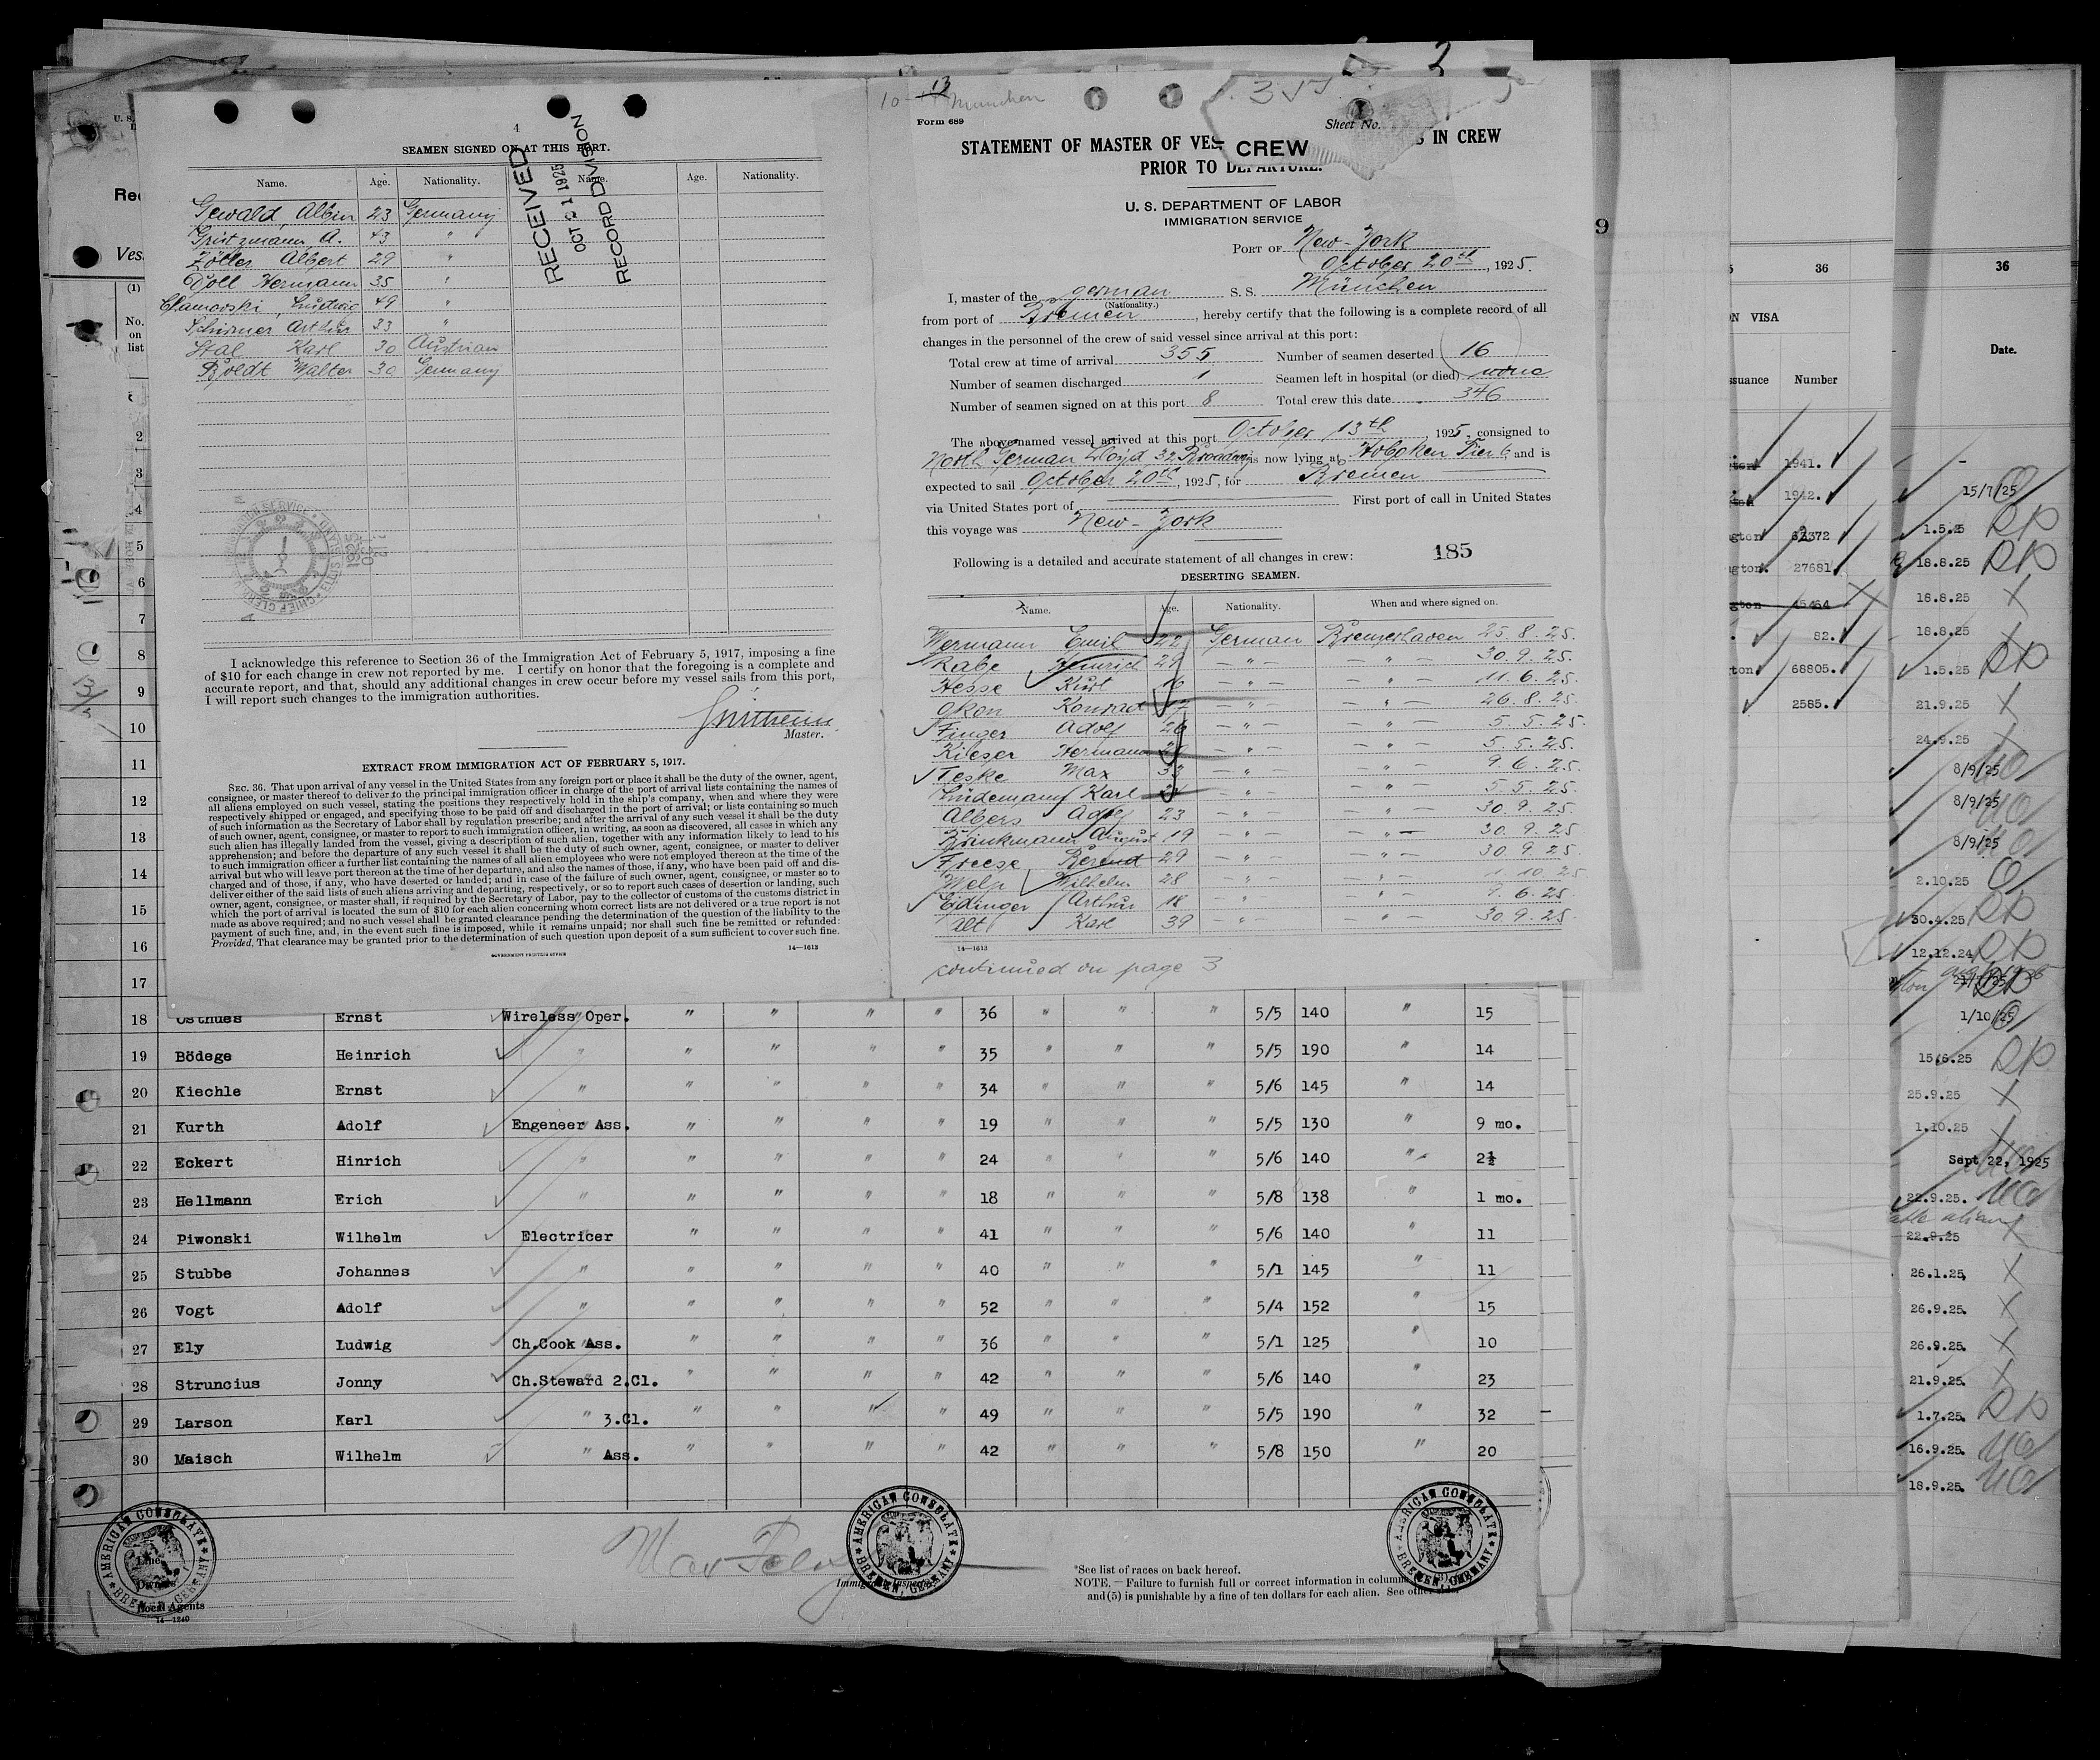 4
SEAMEN SIGNED ON AT THIS PORT.
Name. Age. Nationality. Name. Age. Nationality.
Gewald, Albin 23 Germany
Grützmann A. 43 "
Zöller Albert 29 "
Döll Hermann 35 "
Ludwig 49 "
Schirmer Arthur 33 "
Stal Karl 30 Austrian
Roldt Walter 30 Germany
RECEIVED
OCT 21 1925
RECORD DIVISION
I acknowledge this reference to Section 36 of the Immigration Act of February 5, 1917, imposing a fine
of $10 for each change in crew not reported by me. I certify on honor that the foregoing is a complete and
accurate report, and that, should any additional changes in crew occur before my vessel sails from this port,
I will report such changes to the immigration authorities.
Master.
EXTRACT FROM IMMIGRATION ACT OF FEBRUARY 5, 1917.
SEC. 36. That upon arrival of any vessel in the United States from any foreign port or place it shall be the duty of the owner, agent,
consignee, or master thereof to deliver to the principal immigration officer in charge of the port of arrival lists containing the names of
all aliens employed on such vessel, stating the positions they respectively hold in the ship's company, when and where they were
respectively shipped or engaged, and specifying those to be paid off and discharged in the port of arrival; or lists containing so much
of such information as the Secretary of Labor shall by regulation prescribe; and after the arrival of any such vessel it shall be the duty
of such owner, agent, consignee, or master to report to such immigration officer, in writing, as soon as discovered, all cases in which any
such alien has illegally landed from the vessel, giving a description of such alien, together with any information likely to lead to his
apprehension; and before the departure of any such vessel it shall be the duty of such owner, agent, consignee, or master to deliver
to such immigration officer a further list containing the names of all alien employees who were not employed thereon at the time of the
arrival but who will leave port thereon at the time of her departure, and also the names of those, if any, who have been paid off and dis-
charged and of those, if any, who have deserted or landed; and in case of the failure of such owner, agent, consignee, or master so to
deliver either of the said lists of such aliens arriving and departing, respectively, or so to report such cases of desertion or landing, such
owner, agent, consignee, or master shall, if required by the Secretary of Labor, pay to the collector of customs of the customs district in
which the port of arrival is located the sum of $10 for each alien concerning whom correct lists are not delivered or a true report is not
made as above required; and no such vessel shall be granted clearance pending the determination of the question of the liability to the
payment of such fine, and, in the event such fine is imposed, while it remains unpaid; nor shall such fine be remitted or refunded:
Provided, That clearance may be granted prior to the determination of such question upon deposit of a sum sufficient to cover such fine.
14—1613
GOVERNMENT PRINTING OFFICE
10-13 München
355
Form 689
Sheet No.
STATEMENT OF MASTER OF VES CREW S IN CREW
PRIOR TO DEPARTURE.
U. S. DEPARTMENT OF LABOR
IMMIGRATION SERVICE
PORT OF New-York
October 20th, 1925.
I, master of the german S. S. München
(Nationality.)
from port of Bremen, hereby certify that the following is a complete record of all
changes in the personnel of the crew of said vessel since arrival at this port:
Total crew at time of arrival 355 Number of seamen deserted 16
Number of seamen discharged 1 Seamen left in hospital (or died) none
Number of seamen signed on at this port 8 Total crew this date 346
The above-named vessel arrived at this port October 13th, 1925, consigned to
North German Lloyd 32 Broadway is now lying at Hoboken Pier 6, and is
expected to sail October 20th, 1925, for Bremen
via United States port of First port of call in United States
this voyage was New-York
Following is a detailed and accurate statement of all changes in crew: 185
DESERTING SEAMEN.
Name. Age. Nationality. When and where signed on.
Wermann Emil 22 German Bremerhaven 25.8.25.
Rabe Heinrich 29 — " — — " — 30.9.25.
Hesse Kurt — " — — " — 11.6.25.
Okon Konrad — " — — " — 26.8.25.
Finger Adolf 26 — " — — " — 5.5.25.
Kieser Hermann — " — — " — 5.5.25.
Teske Max 33 — " — — " — 9.6.25.
Lüdemann Karl — " — — " — 5.5.25.
Albers Adolf 23 — " — — " — 30.9.25.
Brinkmann August 19 — " — — " — 30.9.25
Freese Berend 29 — " — — " — 30.9.25
Welp Wilhelm 28 — " — — " — 1.10.25
Eidinger Arthur 18 — " — — " — 6.25
Alt Karl 39 — " — — " — 30.9.25.
14—1613
continued on page 3
U. S.
Rec
Ves
(1)
No.
on
list
2
3
4
5
6
7
8
9
10
11
12
13
14
15
16
17
18 Osthues Ernst Wireless Oper. " " " " 36 " " " 5/5 140 " 15
19 Bödege Heinrich " " " " " 35 " " " 5/5 190 " 14
20 Kiechle Ernst " " " " " 34 " " " 5/6 145 " 14
21 Kurth Adolf Engeneer Ass. " " " " 19 " " " 5/5 130 " 9 mo.
22 Eckert Hinrich " " " " " 24 " " " 5/6 140 " 2½
23 Hellmann Erich " " " " " 18 " " " 5/8 138 " 1 mo.
24 Piwonski Wilhelm Electricer " " " " 41 " " " 5/6 140 " 11
25 Stubbe Johannes " " " " " 40 " " " 5/1 145 " 11
26 Vogt Adolf " " " " " 52 " " " 5/4 152 " 15
27 Ely Ludwig Ch.Cook Ass. " " " " 36 " " " 5/1 125 " 10
28 Struncius Jonny Ch.Steward 2.Cl. " " " " 42 " " " 5/6 140 " 23
29 Larson Karl " 3.Cl. " " " " 49 " " " 5/5 190 " 32
30 Maisch Wilhelm " Ass. " " " " 42 " " " 5/8 150 " 20
AMERICAN CONSULATE BREMEN, GERMANY
AMERICAN CONSULATE BREMEN, GERMANY
AMERICAN CONSULATE BREMEN, GERMANY
Line
Owners
Local Agents
14—1240
Immigrant Inspector
*See list of races on back hereof.
NOTE.—Failure to furnish full or correct information in columns (3)
and (5) is punishable by a fine of ten dollars for each alien. See other side.
9
36
N VISA
ssuance Number
1941.
1942.
62372
27681
15464
82.
ton 68805.
2585.
36
Date.
15/7/25
1.5.25
18.8.25
18.8.25
18.8.25
1.5.25
21.9.25
24.9.25
8/9/25
8/9/25
8/9/25
2.10.25
30.4.25
12.12.24
1/10/25
15.6.25
25.9.25
1.10.25
Sept 22, 1925
22.9.25.
22.9.25
26.1.25.
26.9.25.
26.9.25.
21.9.25.
1.7.25.
16.9.25.
18.9.25.